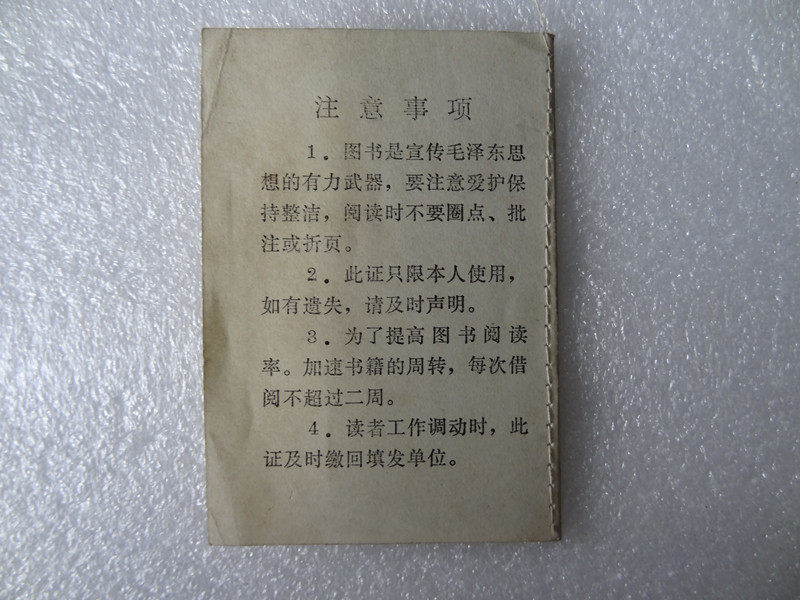 注意事项
1．图书是宣传毛泽东思
想的有力武器，要注意爱护保
持整洁，阅读时不要圈点、批
注或折页。
2．此证只限本人使用，
如有遗失，请及时声明。
3．为了提高图书阅读
率。加速书籍的周转，每次借
阅不超过二周。
4．读者工作调动时，此
证及时缴回填发单位。